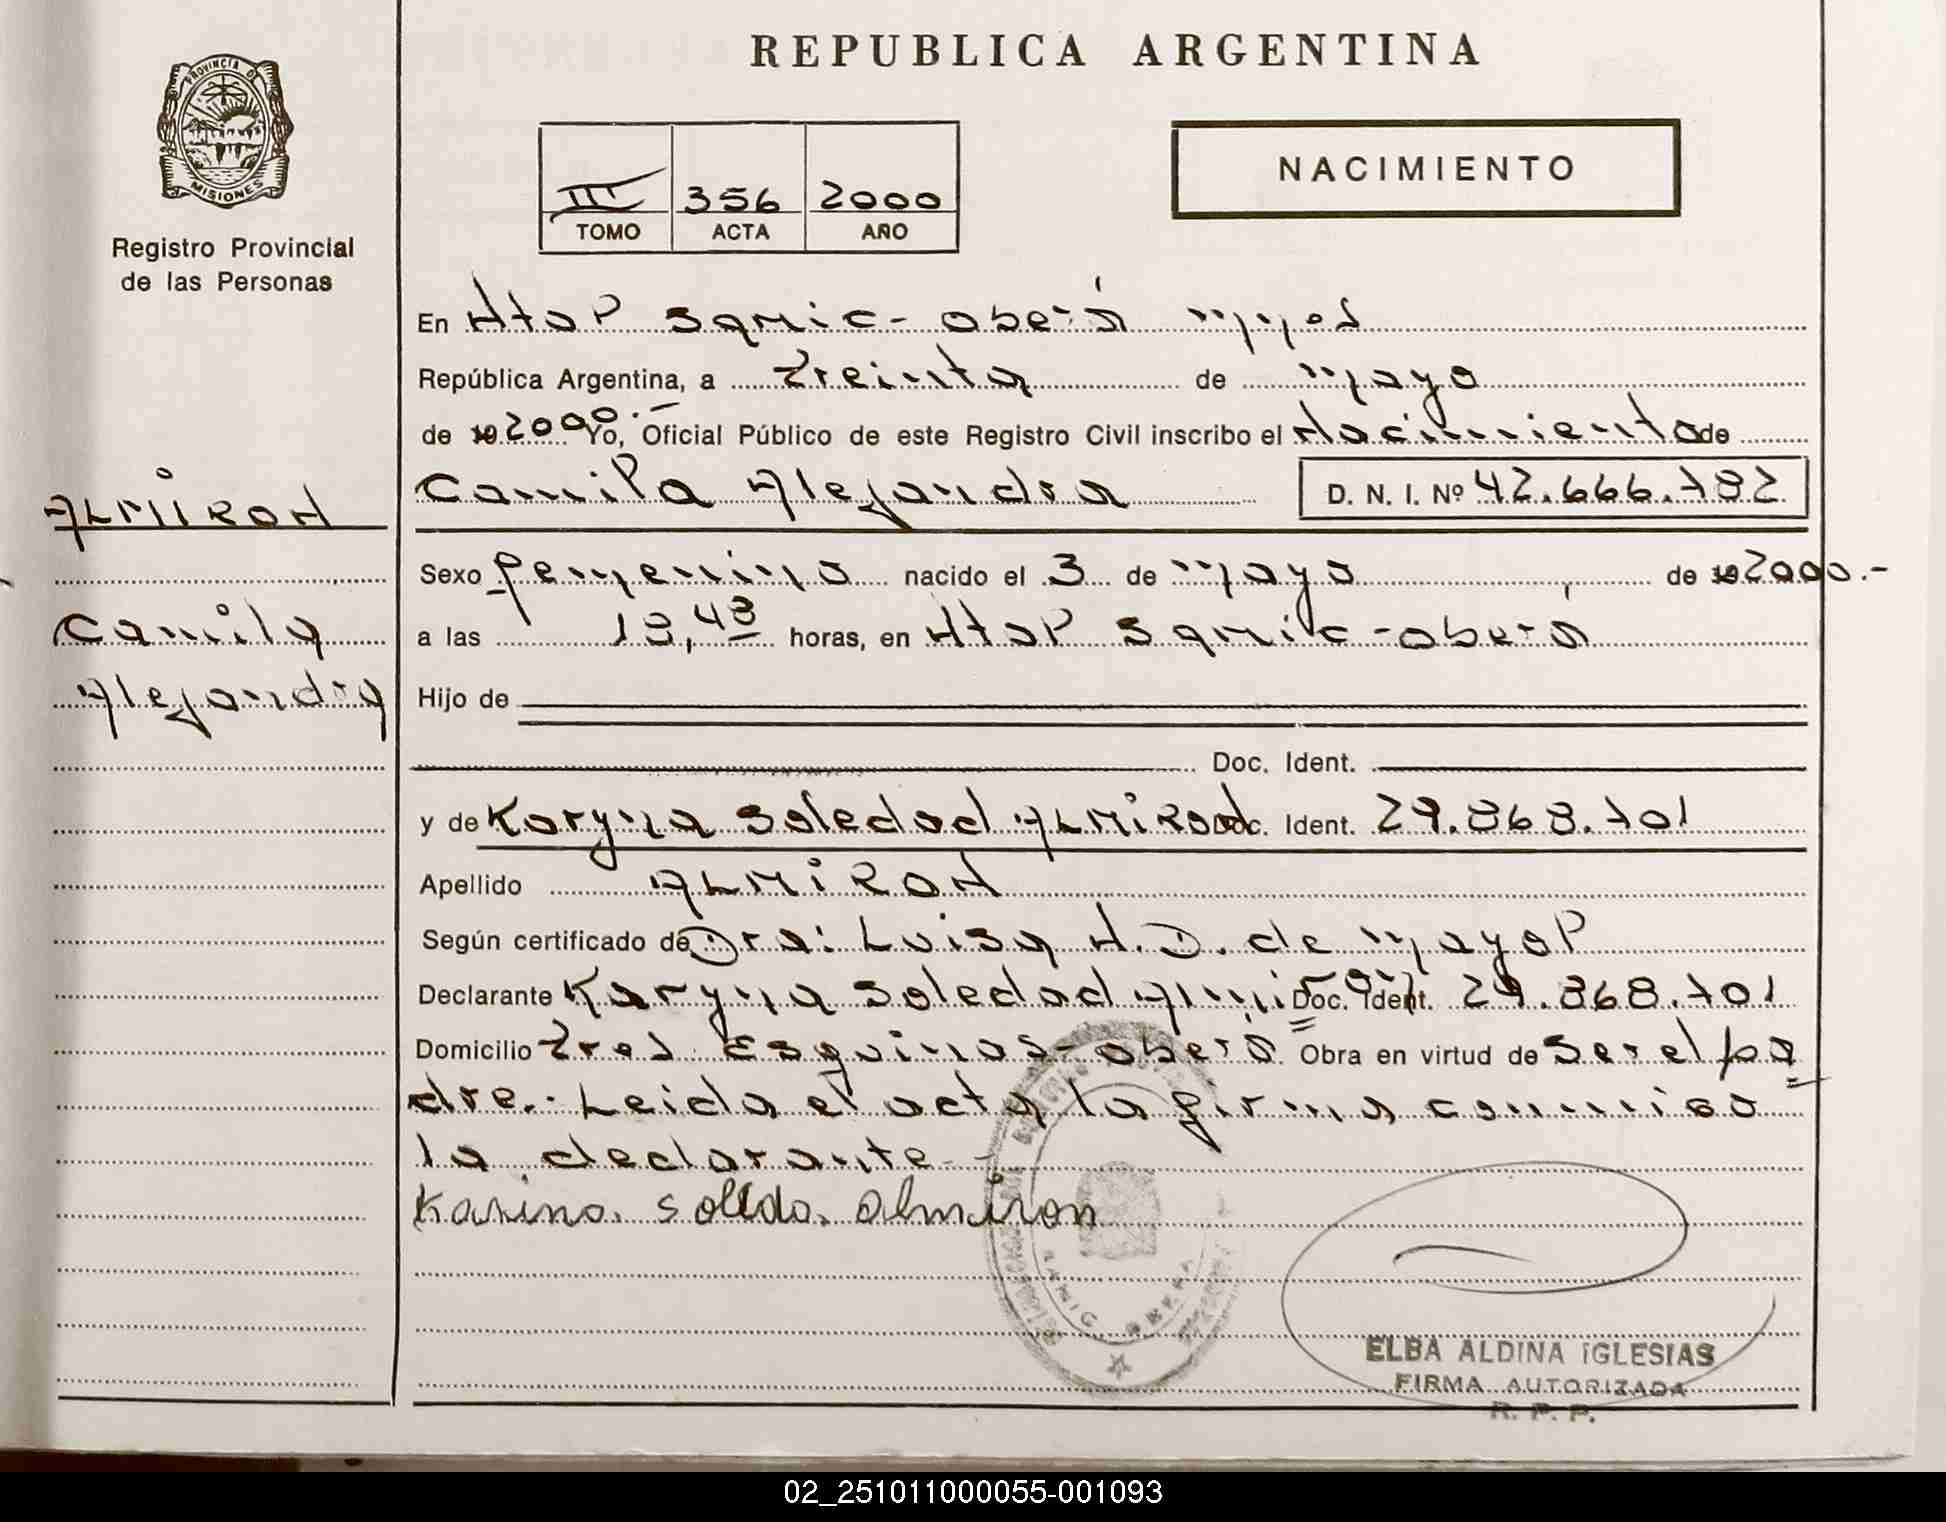 REPUBLICA ARGENTINA
PROVINCIA DE
MISIONES
Registro Provincial
de las Personas
III 356 2000
TOMO ACTA AÑO
NACIMIENTO
En Htal Samic - oberá
República Argentina, a Treinta de mayo
de 19 2000.- Yo, Oficial Público de este Registro Civil inscribo el Nacimiento de
Camila Alejandra D. N. I. Nº 42.666.782
ALMIRON
Camila
Alejandra
Sexo femenino nacido el 3 de mayo de 19 2000.-
a las horas, en Htal Samic - oberá
Hijo de
Doc. Ident.
y de Karyna Soledad ALMIRON Doc. Ident. 29.868.701
Apellido ALMIRON
Según certificado de Dra: Luisa N. D. de mayol
Declarante Karyna Soledad Almirón Doc. Ident. 29.868.701
Domicilio Tres Esquinas - oberá. Obra en virtud de ser el pa
dre.- Leida el acta la firma conmigo
la declarante -
Karina. solida. almiron
SAMIC OBERA
ELBA ALDINA IGLESIAS
FIRMA AUTORIZADA
R. P. P.
02_251011000055-001093